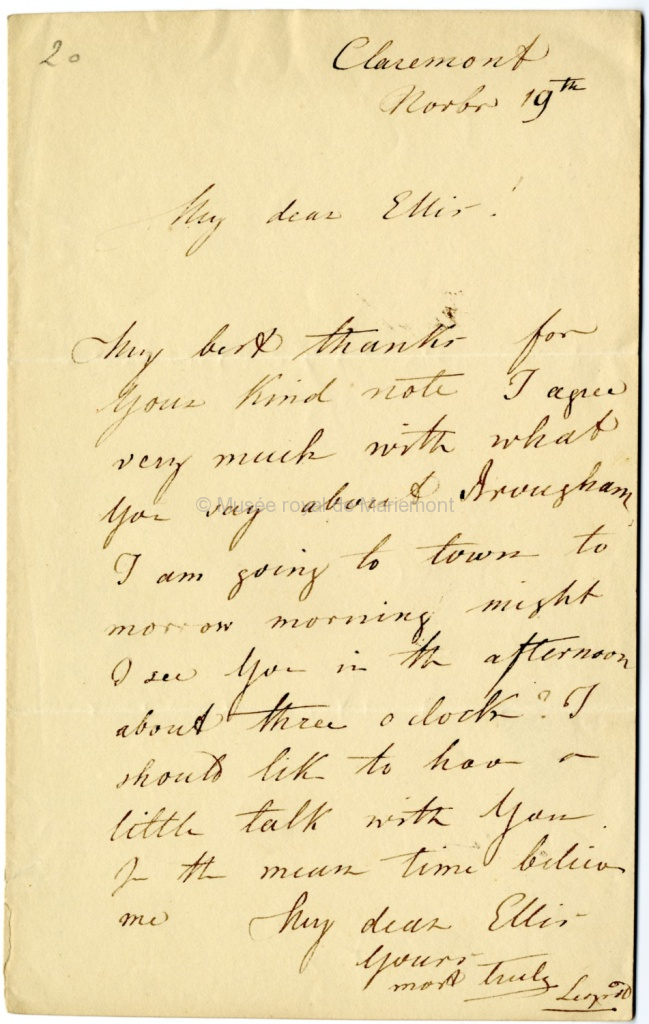 20
Claremont
Novbr 19th
My dear Ellis!
My best thanks for
your kind note I agree
very much with what
You say about Brougham
© Musée royal de Mariemont
I am going to town to
morrow morning might
I see You in the afternoon
about three o clock? I
should like to have a
little talk with You.
In the mean time believe
me My dear Ellis
Yours
most truly Leopold